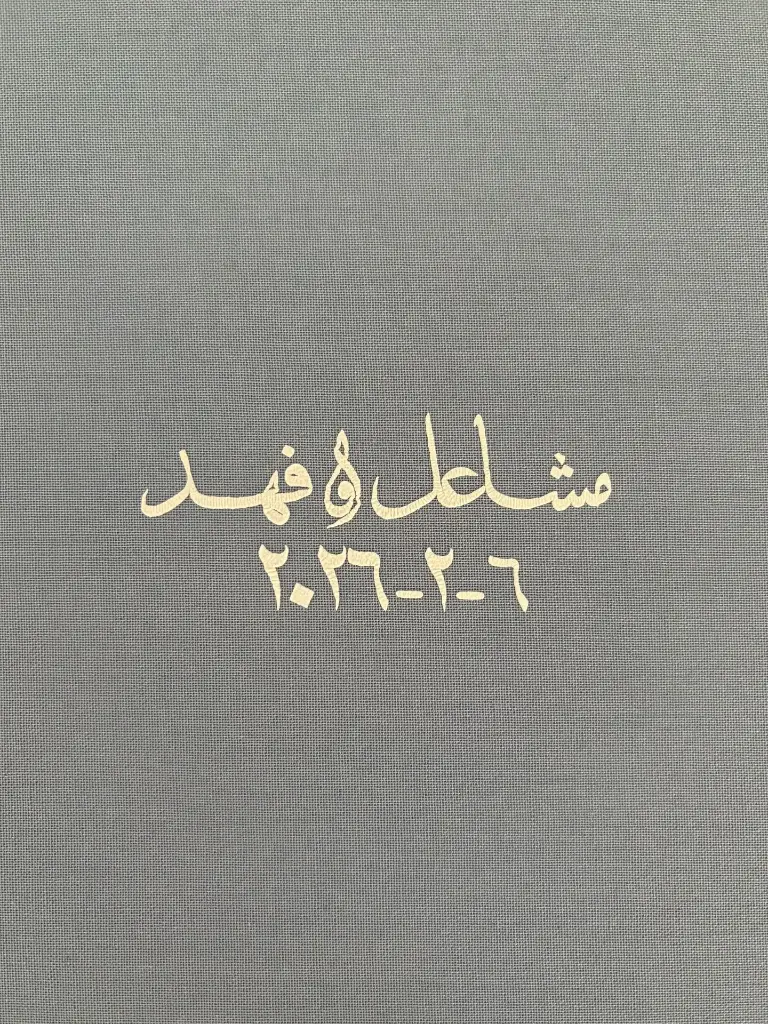 مشاعل و فهد
٦-٢-٢٠٢٦